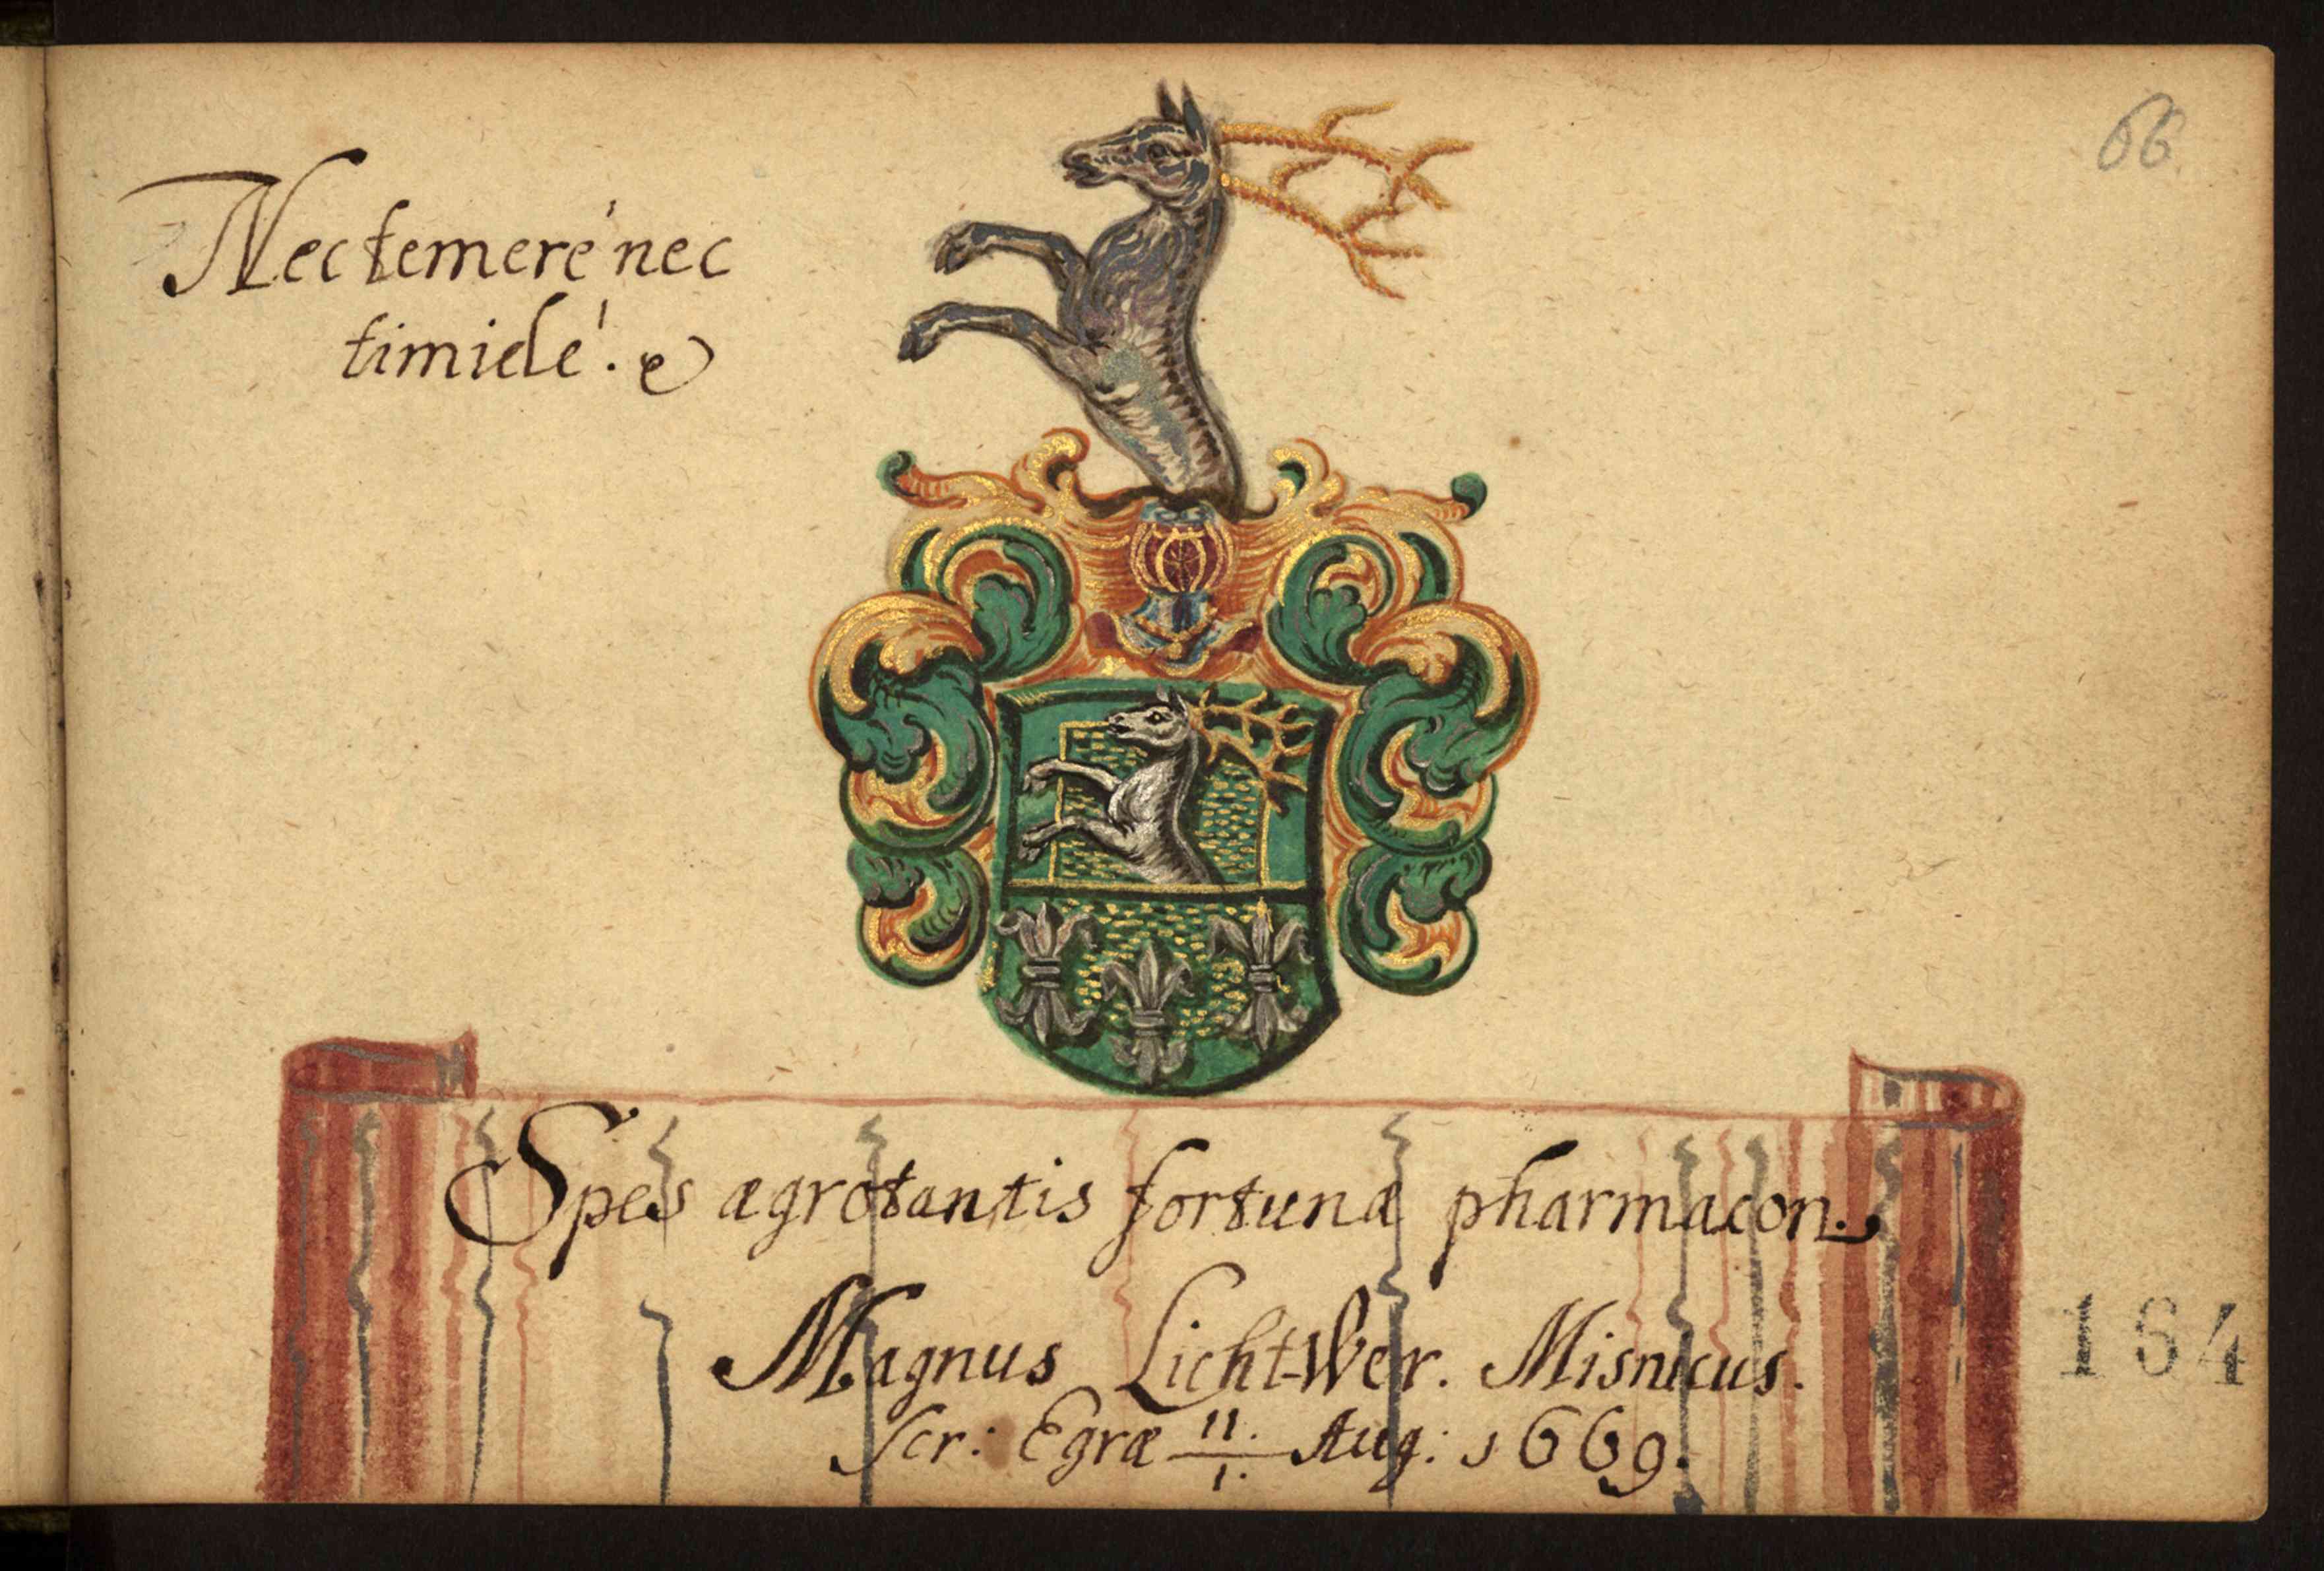 66
Nec temerè nec
timidè.
Spes ægrotantis fortunæ pharmacon.
Magnus Licht-Wer. Misnicus.
scr: Egræ 11./1. Aug: 1669.
164